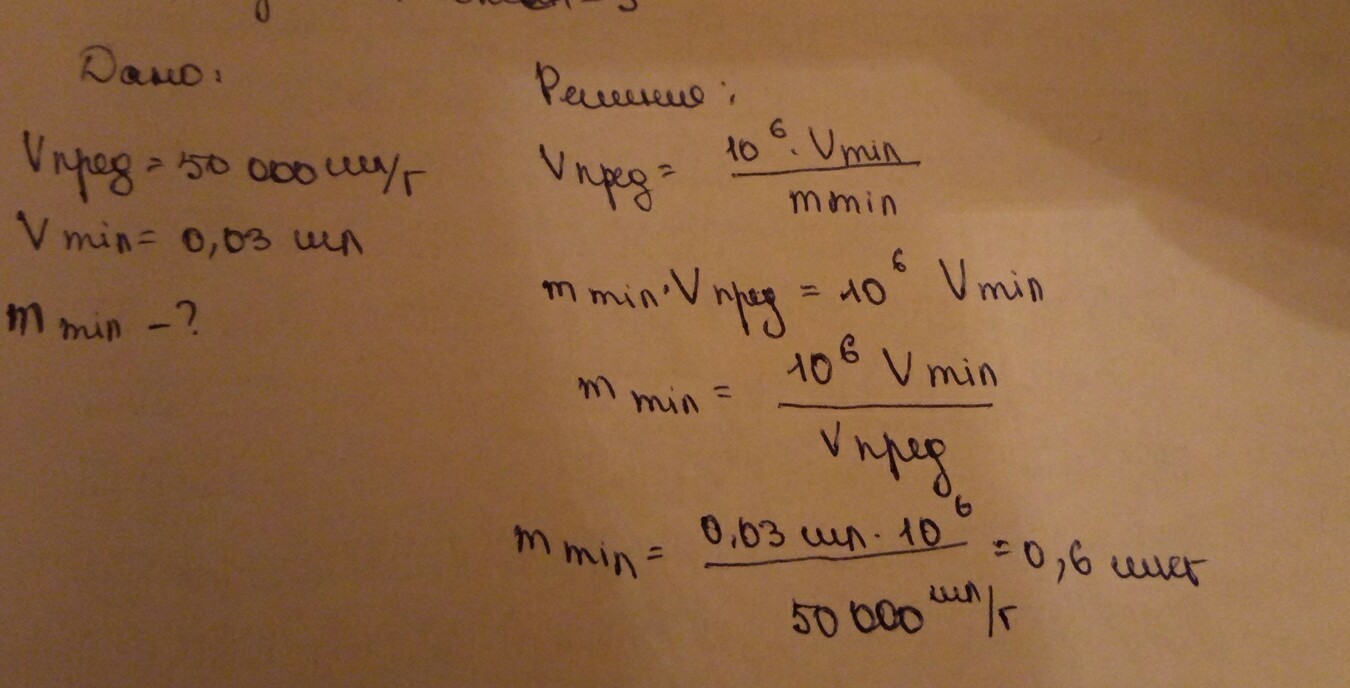 Дано:
Vпред = 50 000 мл/г
V min = 0,03 мл
m min - ?
Решение:
Vпред = 10⁶ · Vmin / m min
m min · V пред = 10⁶ V min
m min = 10⁶ V min / V пред
m min = 0,03 мл · 10⁶ / 50 000 мл/г = 0,6 мкг